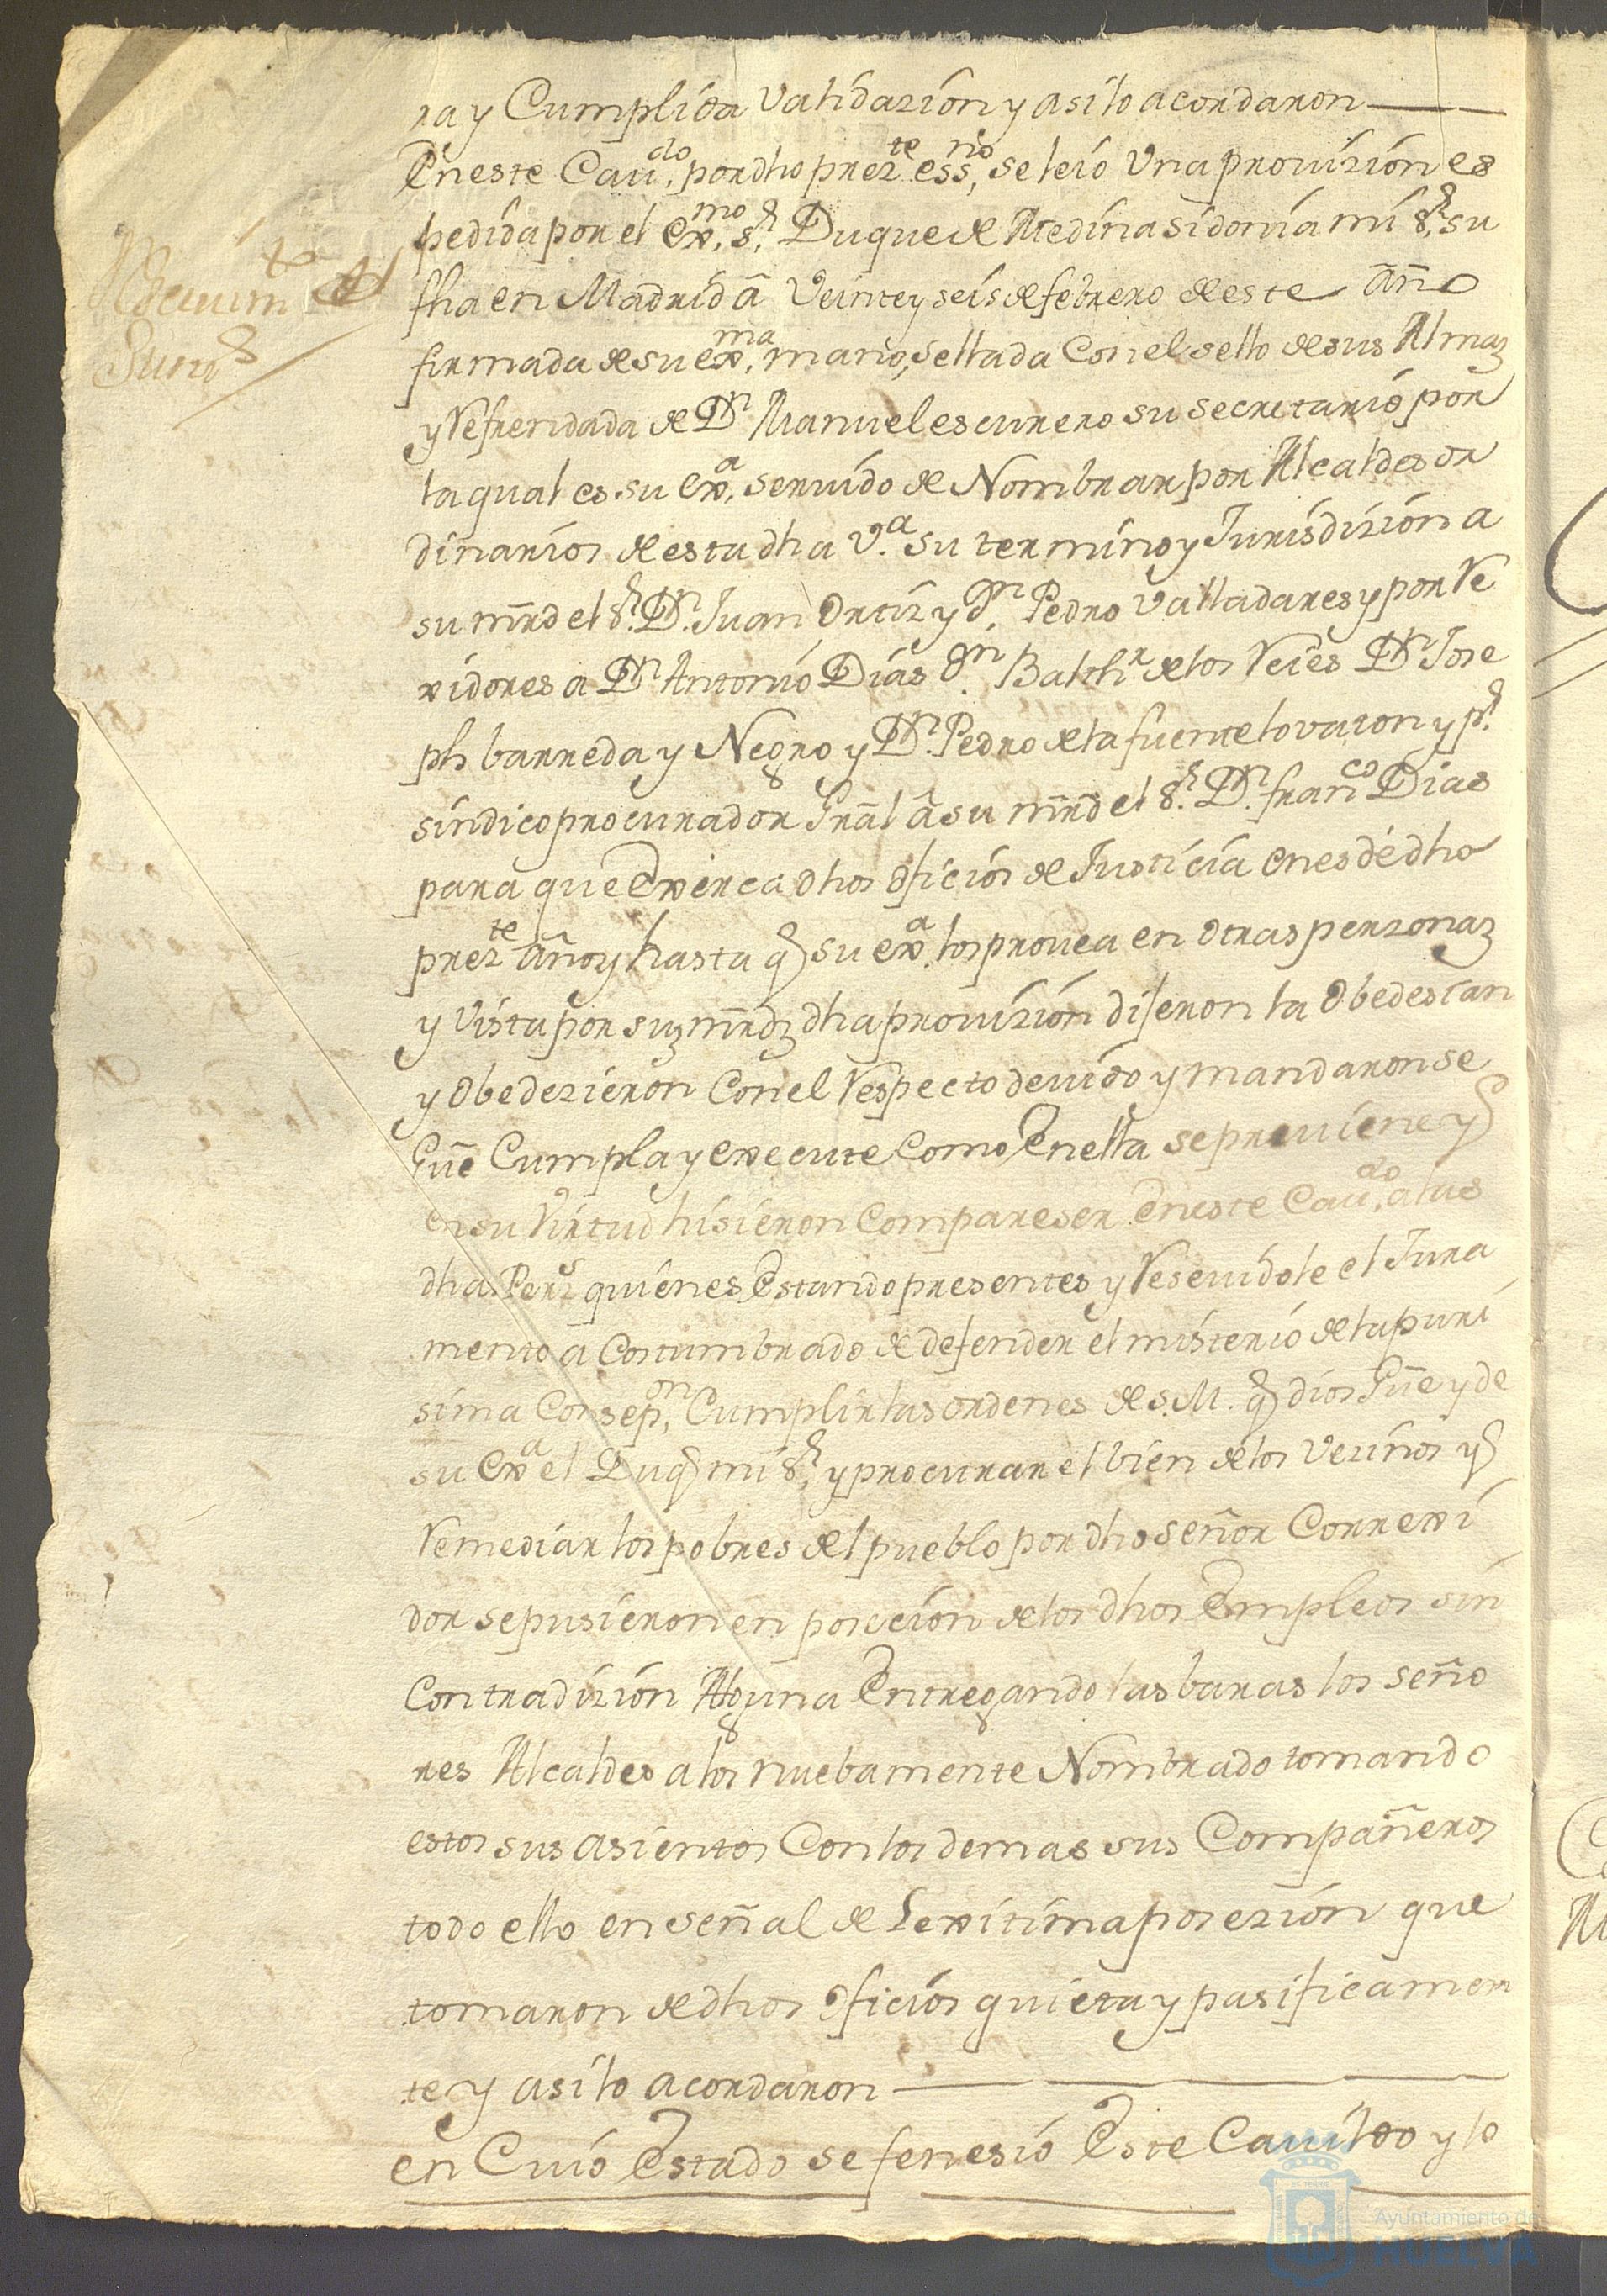 ra y Cumplida validazion y asi lo acordaron
En este Caudo. por dho prezte essno, se leió Una provizion es
pedida por el Exmo. sr. Duque de Medina sidonia mi sr. su
fha en Madrid â Veinte y seis de febrero de este año
firmada de su exma. mano, sellada Con el sello de sus Almaz
y Refrendada de Dn Manuel escurero su secretario por
la qual es su exa. seruido de Nombrar por Alcaldes or
dinarios de esta dha va. su termino y Jurisdizion a
su mrd el sr. Dn. Juan Ortiz y dn. Pedro Valladares y por Re
xidores a Dn Antonio Dias dn. Balthr de los Reies Dn Jose
ph barreda y Negro y Dn. Pedro de la fuente lovaton y pr.
sindico procurador Gral â su mrd el sr. Dn. franco Dias
para que Exerca dhos ofícios de Justicia en esde dho
prezte año y hasta q su exa. los provea en otras perzonaz
y Vista por suz mrdz dha provizion dijeron la Obedesian
y Obedezieron Con el Respecto devido y mandaron se
Gue Cumpla y execute Como En ella se previene y
en su Virtud hisieron Compareser En este Caudo. a las
dhas Perz quienes Estando presentes y Reseuidole el Jura
mento a Costumbrado de defender el misterio de la puri
sima Consepon. Cumplir las ordenes de S.M. q dios Gue y de
su exa el Duq mi sr. y procurar el bien de los Vezinos y
Remediar los pobres del pueblo por dho señor Correxi
dor se pusieron en posecion de los dhos Empleos sin
Contradizion Alguna Entregando las baras los seño
res Alcaldes a los nuebamente Nombrado tomando
estos sus asientos Con los demas sus Compañeros
todo ello en señal de Lexitima posezion que
tomaron de dhos oficios quieta y pasificamen
te y asi lo acordaron
en Cuio Estado se fenesió Este Cauildo y lo
Reciuimto de
Juros
Ayuntamiento de
HUELVA